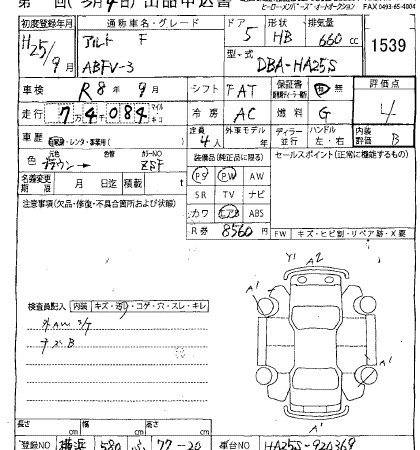 第 回( 3月4日) 出品申込書
ヒーロー・メンバーズ・オートオークション FAX 0493-65-4004
初度登録年月 通称車名・グレード ドア 形状 排気量
H25/9月 アルト F 5 HB 660 cc 1539
ABFV-3 型式 DBA-HA25S
車検 R8年9月 シフト FAT 保証書 有 無 評価点
走行 7万4千084 マイル キロ 冷房 AC 燃料 G 4
車歴 自家用・レンタ・事業用( ) 定員 4人 外車モデル 年 ディーラー 並行 ハンドル 左・右 内装評価 B
色 元色 ブラウン → 色替 カラーNO ZBF 装備品(純正品に限る) セールスポイント(正常に機能するもの)
名義変更期限 月 日迄 積載 t PS PW AW
注意事項(欠品・修復・不具合箇所および状態) SR TV ナビ
カワ エアB ABS
R券 8560円 FW キズ・ヒビ割・リペア跡・X要
Y1 A2
A'
A'
検査員記入 内装 キズ・汚・コゲ・穴・スレ・キレ
外AW S/T
ナビB
A'
A'
長さ cm 幅 cm 高さ cm
登録NO 横浜 580 ふ 77-20 車台NO HA25S-920369